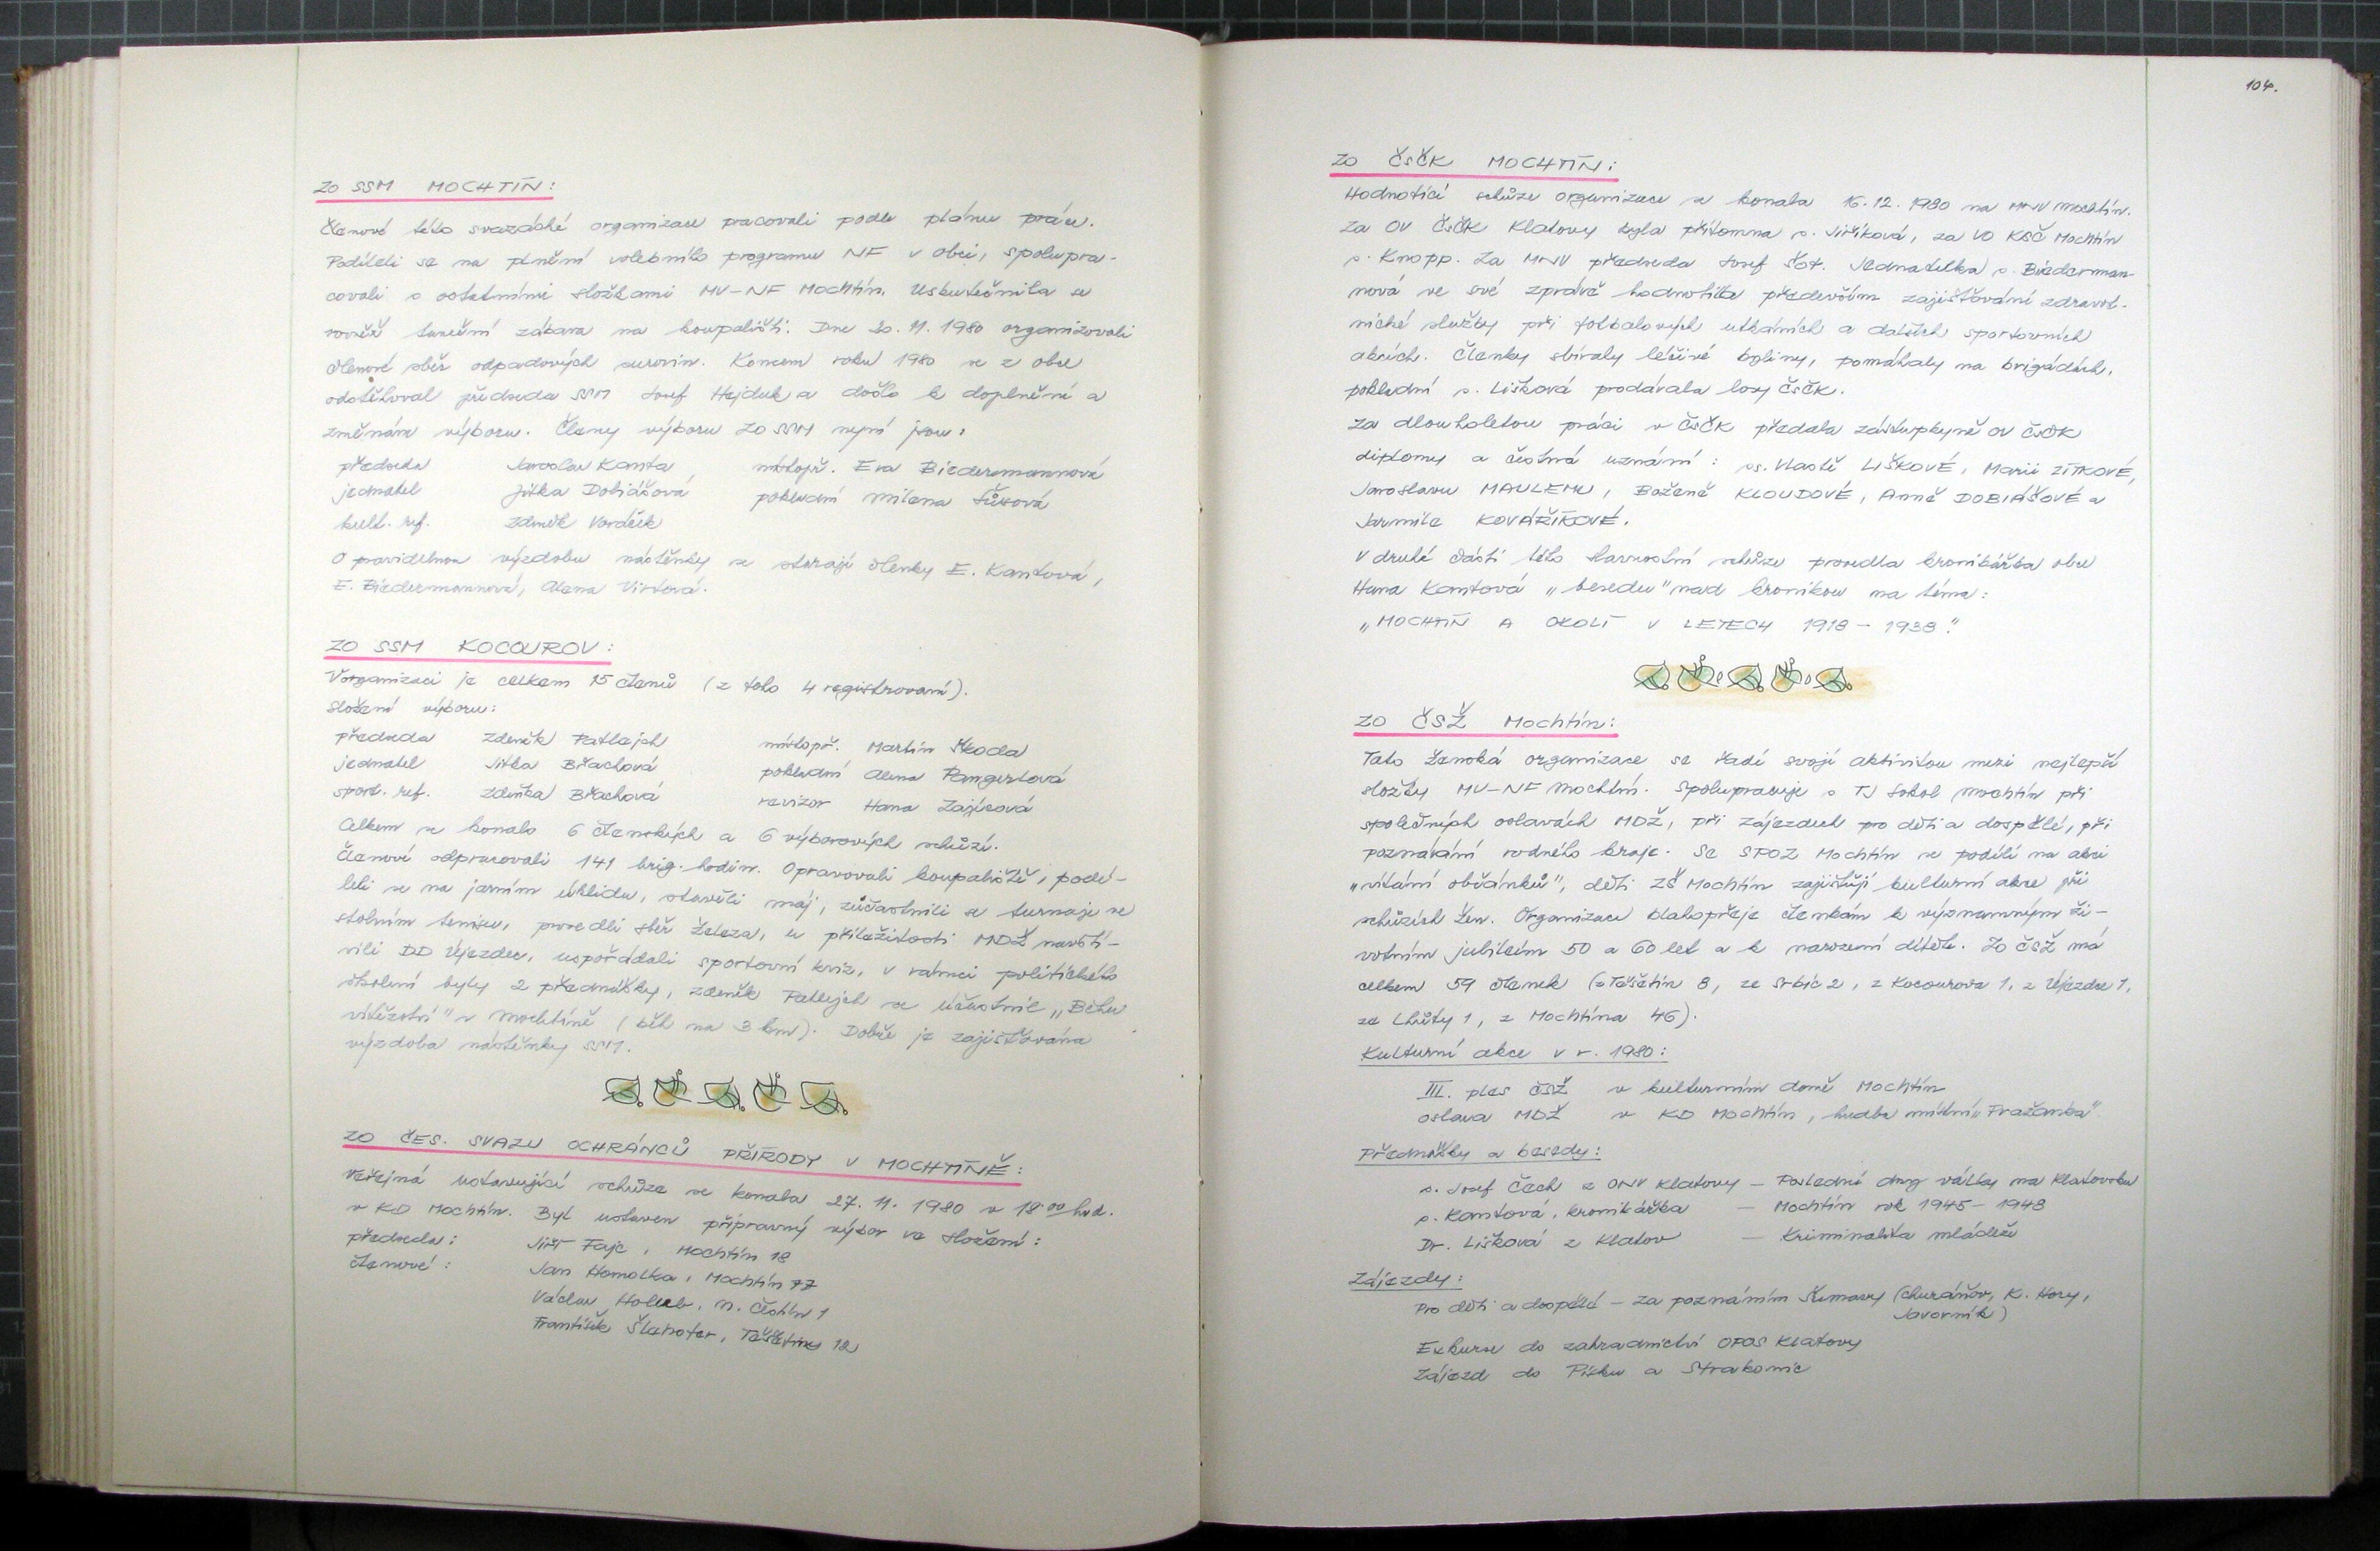 ZO SSM MOCHTÍN:
Členové této svazácké organizace pracovali podle plánu práce.
Podíleli se na plnění volebního programu NF v obci, spolupra-
covali s ostatními složkami MV-NF Mochtín. Uskutečnila se
rovněž taneční zábava na koupališti. Dne 20. 11. 1980 organizovali
členové sběr odpadových surovin. Koncem roku 1980 se z obce
odstěhoval předseda SSM Josef Hejduk a došlo k doplnění a
změnám výboru. Členy výboru ZO SSM nyní jsou:
předseda Jaroslav Kanta, místopř. Eva Biedermannová
jednatel Jitka Dobiášová pokladní Milena
kult. ref. Zdeněk Voráček
O pravidelnou výzdobu nástěnky se starají členky E. Kantová,
E. Biedermannová, Alena Virtová.
ZO SSM KOCOUROV:
V organizaci je celkem 15 členů (z toho 4 registrovaní).
Složení výboru:
předseda Zdeněk Patlejch místopř. Martin Škoda
jednatel Jitka Břachová pokladní Alena Pangertová
sport. ref. Zdeňka Břachová revizor Hana Zajícová
Celkem se konalo 6 členských a 6 výborových schůzí.
Členové odpracovali 141 brig. hodin. Opravovali koupaliště, podí-
leli se na jarním úklidu, stavěli máj, zúčastnili se turnaje ve
stolním tenisu, provedli sběr železa, u příležitosti MDŽ navští-
vili DD Újezdec, uspořádali sportovní kvíz, v rámci politického
školení byly 2 přednášky, Zdeněk Patlejch se účastnil „Běhu
vítězství" v Mochtíně (běh na 3 km). Dobře je zajišťována
výzdoba nástěnky SSM.
ZO ČES. SVAZU OCHRÁNCŮ PŘÍRODY V MOCHTÍNĚ:
Veřejná ustavující schůze se konala 27. 11. 1980 v 18 00 hod.
v KD Mochtín. Byl ustaven přípravný výbor ve složení:
předseda: Jiří Fajc, Mochtín 18
členové: Jan Homolka, Mochtín 77
Václav Holub, n. Čestín 1
František Šlehofer, Těšetiny 12
104.
ZO ČSČK MOCHTÍN:
Hodnotící schůze organizace se konala 16. 12. 1980 na MNV Mochtín.
Za OV ČSČK Klatovy byla přítomna s. Jiříková, za VO KSČ Mochtín
s. Knopp. Za MNV předseda Josef Šot. Jednatelka s. Biederman-
nová ve své zprávě hodnotila především zajišťování zdravot-
nické služby při fotbalových utkáních a dalších sportovních
akcích. Členky sbíraly léčivé byliny, pomáhaly na brigádách,
pokladní s. Lišková prodávala losy ČSČK.
Za dlouholetou práci v ČSČK předala zástupkyně OV ČSČK
diplomy a čestná uznání: ss. Vlastě LIŠKOVÉ, Marii ZÍTKOVÉ,
Jaroslavu MAULEMU, Boženě KLOUDOVÉ, Anně DOBIÁŠOVÉ a
Jarmile KOVÁŘÍKOVÉ.
V druhé části této slavnostní schůze provedla kronikářka obce
Hana Kantová „besedu" nad kronikou na téma:
„MOCHTÍN A OKOLÍ V LETECH 1918 - 1938."
ZO ČSŽ Mochtín:
Tato ženská organizace se řadí svojí aktivitou mezi nejlepší
složky MV-NF Mochtín. Spolupracuje s TJ Sokol Mochtín při
společných oslavách MDŽ, při zájezdech pro děti a dospělé, při
poznávání rodného kraje. Se SPOZ Mochtín se podílí na akci
„vítání občánků", děti ZŠ Mochtín zajišťují kulturní akce při
schůzích žen. Organizace blahopřeje členkám k významným ži-
votním jubileím 50 a 60 let a k narození dítěte. ZO ČSŽ má
celkem 59 členek (z Těšetin 8, ze Srbic 2, z Kocourova 1, z Újezdce 1,
ze Lhůty 1, z Mochtína 46).
Kulturní akce v r. 1980:
III. ples ČSŽ v kulturním domě Mochtín
oslava MDŽ v KD Mochtín, hudba místní „Pražanka"
Přednášky a besedy:
s. Josef Čech z ONV Klatovy - Poslední dny války na Klatovsku
s. Kantová, kronikářka - Mochtín rok 1945 - 1948
Dr. Lišková z Klatov - Kriminalita mládeže
Zájezdy:
Pro děti a dospělé - za poznáním Šumavy (Churáňov, K. Hory,
Javorník)
Exkurse do zahradnictví OPOS Klatovy
Zájezd do Písku a Strakonic